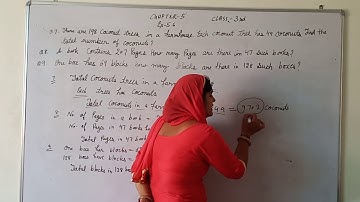 CHAPTER-5 CLASS-3rd
Ex-5.6
Q7. There are 198 Coconut trees in a farmhouse. Each coconut tree has 49 coconuts. Find the
total number of coconuts?
Q8 A book Contains 207 Pages How many Pages are there in 47 Such books?
Q9 One box has 69 blocks How many blocks are there in 128 Such boxes?
7 Total Coconuts trees in a Farm
Each Trees has Coconuts
Total Coconuts in a Farm 49 = 9702 Coconuts
8 No. of Pages in a book
No. of Pages in 47 book
9 One box has blocks
128 boxes have blocks
Total blocks in 128 box